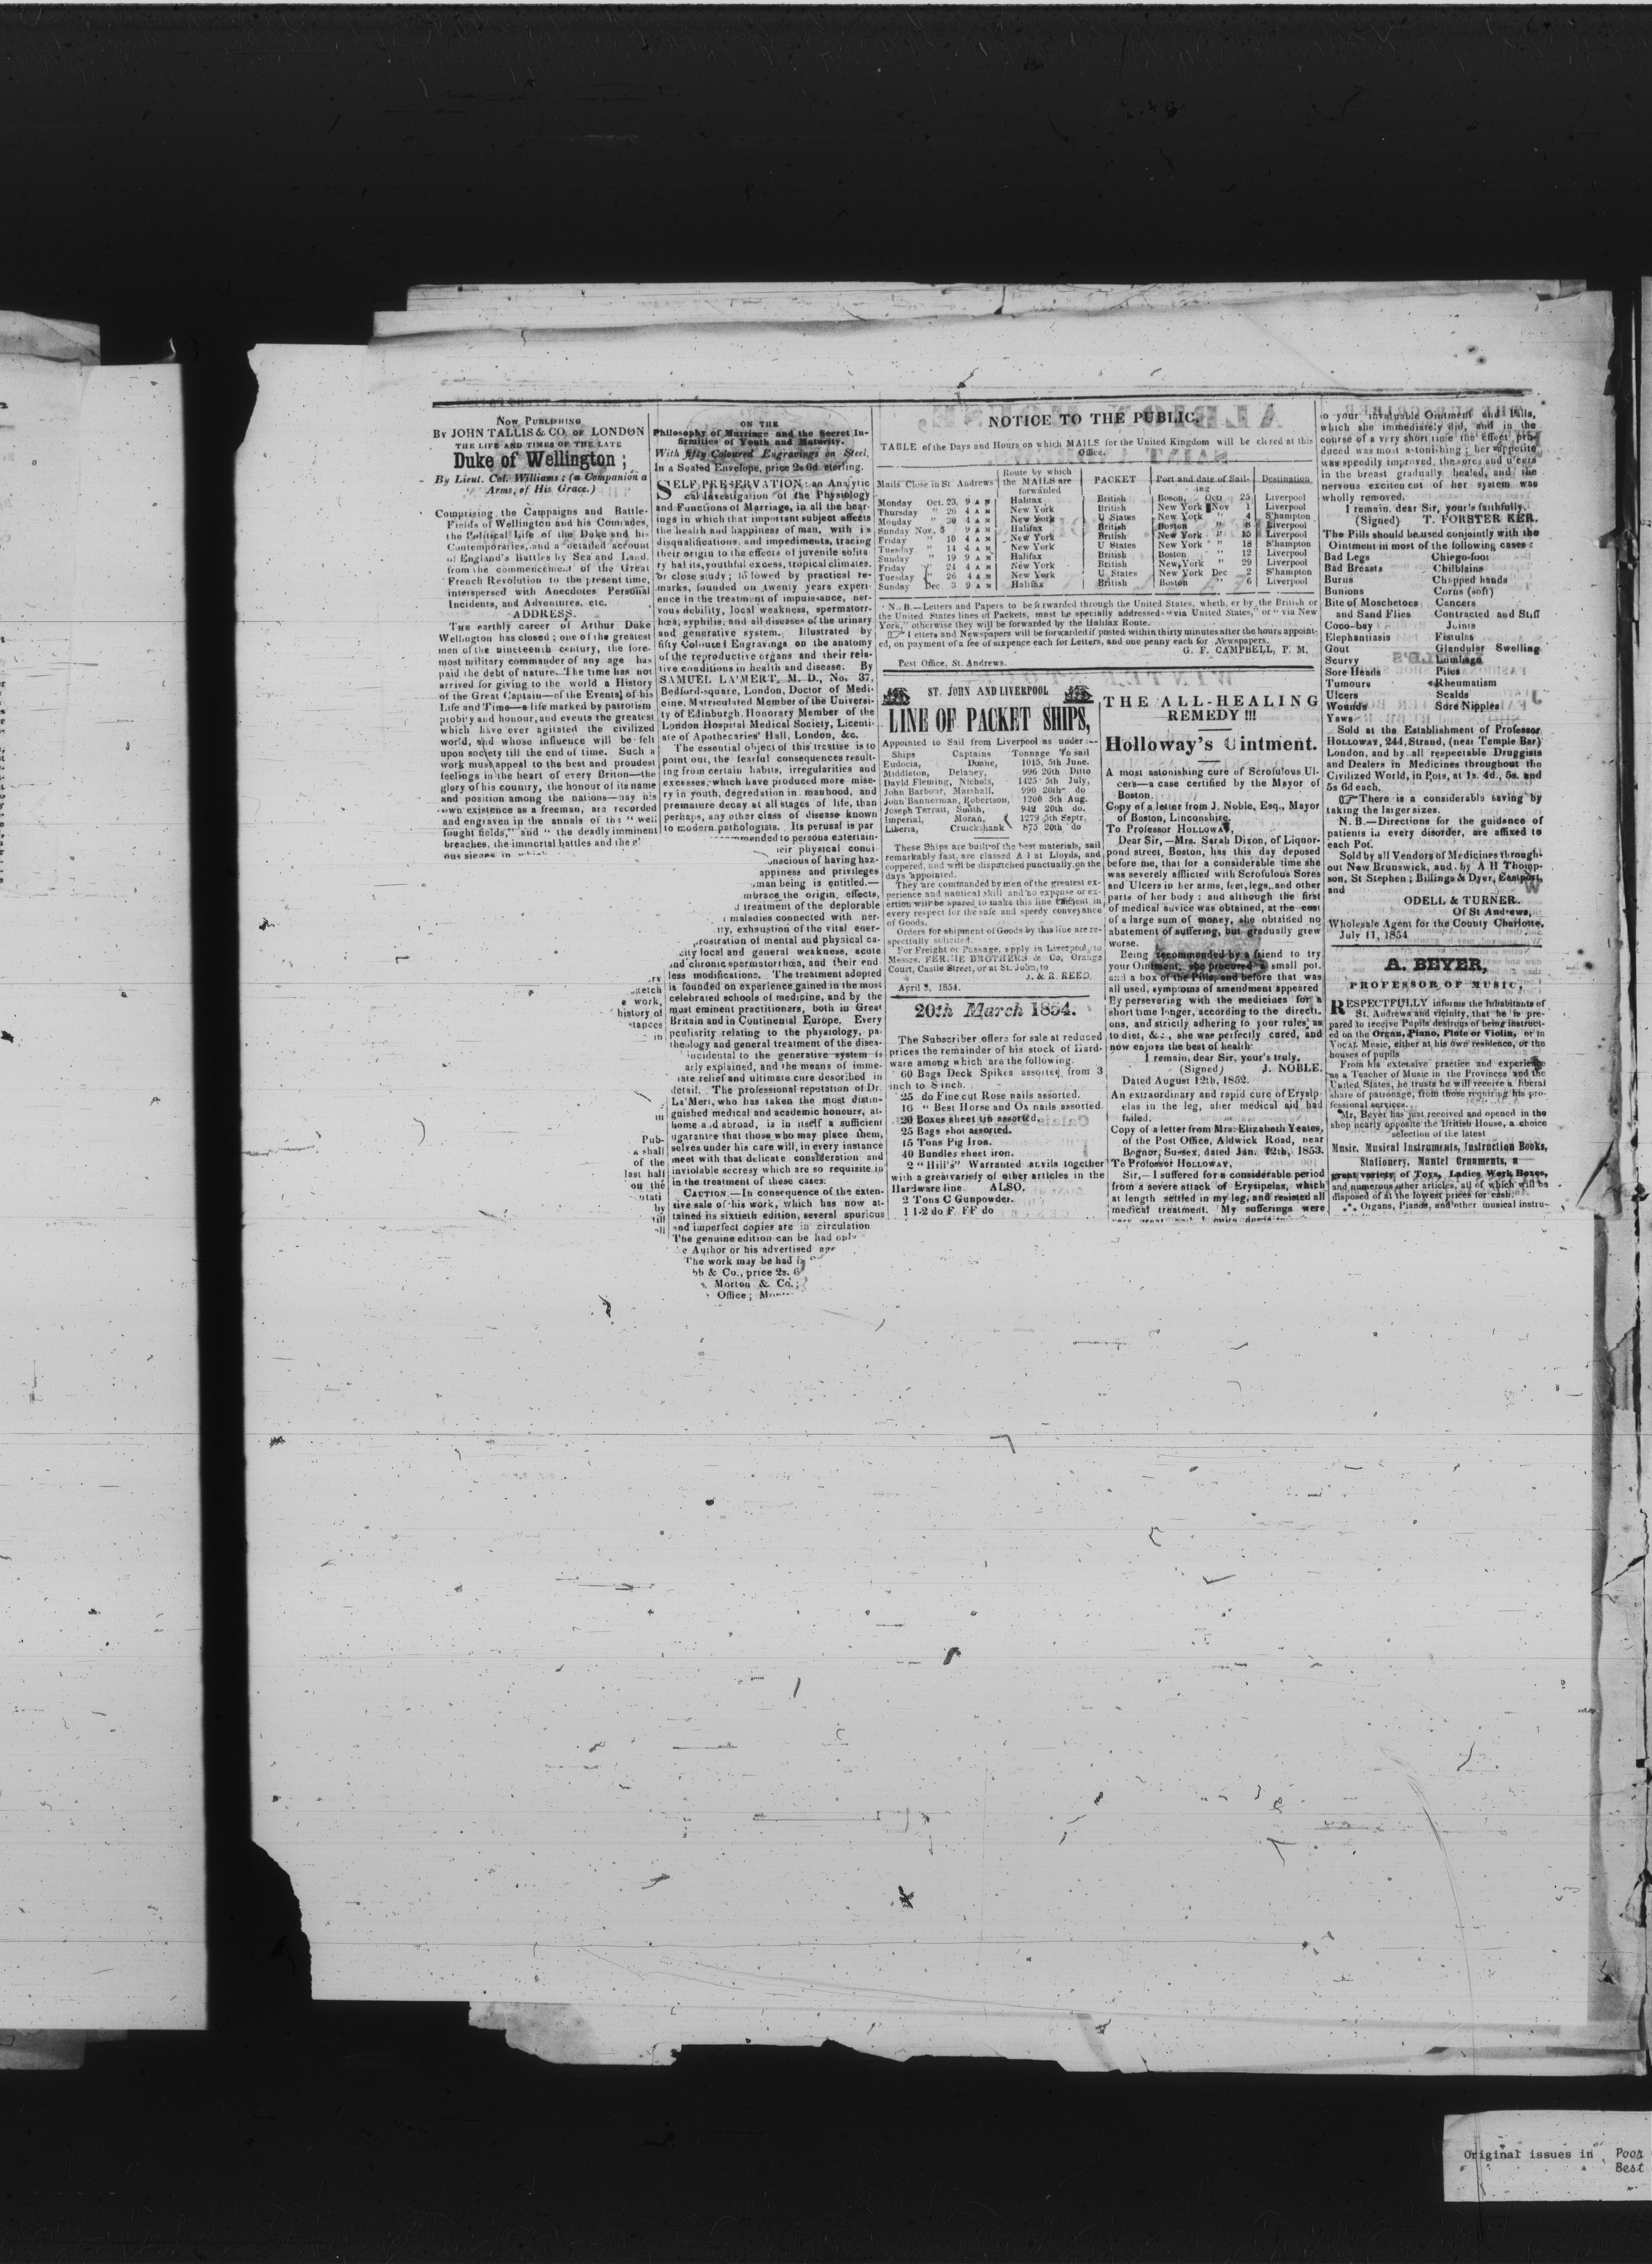 Now Publishing
By JOHN TALLIS & CO. of LONDON
THE LIFE AND TIMES OF THE LATE
Duke of Wellington ;
By Lieut. Col. Williams ; (a Companion in
Arms, of His Grace.)
Comprising the Campaigns and Battle-
Fields of Wellington and his Comrades,
the Political Life of the Duke and his
Contemporaries, and a detailed account
of England's Battles by Sea and Land,
from the commencement of the Great
French Revolution to the present time,
interspersed with Anecdotes Personal
Incidents, and Adventures, etc.
ADDRESS.
The earthly career of Arthur Duke
Wellington has closed ; one of the greatest
men of the nineteenth century, the fore-
most military commander of any age has
paid the debt of nature. The time has not
arrived for giving to the world a History
of the Great Captain—of the Events of his
Life and Time—a life marked by patriotism
probity and honour, and events the greatest
which have ever agitated the civilized
world, and whose influence will be felt
upon society till the end of time. Such a
work must appeal to the best and proudest
feelings in the heart of every Briton—the
glory of his country, the honour of its name
and position among the nations—nay his
own existence as a freeman, are recorded
and engraven in the annals of the "well
fought fields," and "the deadly imminent
breaches, the immortal battles and the
ous sieges in
sketch
work,
history of
in
Pub-
shall
of the
last half
on the
by
till
ON THE
Philosophy of Marriage and the Secret In-
firmities of Youth and Maturity.
With fifty Coloured Engravings on Steel,
In a Sealed Envelope, price 2s 6d sterling.
SELF PRESERVATION: an Analytic
cal Investigation of the Physiology
and Functions of Marriage, in all the bear-
ings in which that important subject affects
the health and happiness of man, with is
disqualifications, and impediments, tracing
their origin to the effects of juvenile solita
ry habits, youthful excess, tropical climates,
or close study ; followed by practical re-
marks, founded on twenty years experi-
ence in the treatment of impuissance, ner-
vous debility, local weakness, spermatorr-
hœa, syphilis, and all diseases of the urinary
and generative system. Illustrated by
fifty Coloured Engravings on the anatomy
of the reproductive organs and their rela-
tive conditions in health and disease. By
SAMUEL LA'MERT, M. D., No. 37,
Bedford-square, London, Doctor of Medi-
cine, Matriculated Member of the Universi-
ty of Edinburgh, Honorary Member of the
London Hospital Medical Society, Licenti-
ate of Apothecaries' Hall, London, &c.
The essential object of this treatise is to
point out, the fearful consequences result-
ing from certain habits, irregularities and
excesses, which have produced more mise-
ry in youth, degradation in manhood, and
premature decay at all stages of life, than
perhaps, any other class of disease known
to modern pathologists. Its perusal is par
mmended to persons entertain-
eir physical condi
nscious of having haz-
appiness and privileges
man being is entitled.—
mbrace the origin, effects,
d treatment of the deplorable
maladies connected with ner-
ity, exhaustion of the vital ener-
rostration of mental and physical ca-
city local and general weakness, acute
and chronic spermatorrhœa, and their end
less modifications. The treatment adopted
is founded on experience gained in the most
celebrated schools of medicine, and by the
most eminent practitioners, both in Great
Britain and in Continental Europe. Every
peculiarity relating to the physiology, pa-
thology and general treatment of the disea-
incidental to the generative system is
arly explained, and the means of imme-
iate relief and ultimate cure described in
detail. The professional reputation of Dr.
La'Mert, who has taken the most distin-
guished medical and academic honours, at-
home and abroad, is in itself a sufficient
ugarantee that those who may place them,
selves under his care will, in every instance
meet with that delicate consideration and
inviolable secresy which are so requisite in
in the treatment of these cases.
Caution.—In consequence of the exten-
sive sale of his work, which has now at-
tained its sixtieth edition, several spurious
and imperfect copies are in circulation
The genuine edition can be had only
e Author or his advertised age
The work may be had
bb & Co., price 2s. 6
s. Morton & Co.;
Office;
NOTICE TO THE PUBLIC.
TABLE of the Days and Hours on which MAILS for the United Kingdom will be closed at this
Office.
Mails Close in St Andrews | Route by which the MAILS are forwarded | PACKET | Port and date of Sailing | Destination
Monday Oct. 23, 9 A M | Halifax | British | Boson, Oct 25 | Liverpool
Thursday " 26 4 A M | New York | British | New York Nov 1 | Liverpool
Monday " 30 4 A M | New York | U States | New York " 4 | S'hampton
Sunday Nov. 5 9 A M | Halifax | British | Boston " 8 | Liverpool
Friday " 10 4 A M | New York | British | New York " 15 | Liverpool
Tuesday " 14 4 A M | New York | U States | New York " 18 | S'hampton
Sunday " 19 9 A M | Halifax | British | Boston " 12 | Liverpool
Friday " 24 4 A M | New York | British | New York " 29 | Liverpool
Tuesday " 26 4 A M | New York | U States | New York Dec 2 | S'hampton
Sunday Dec 3 9 A M | Halifax | British | Boston " 6 | Liverpool
N. B.—Letters and Papers to be forwarded through the United States, wheth, er by the British or
the United States lines of Packets, must be specially addressed "via United States," or "via New
York," otherwise they will be forwarded by the Halifax Route.
☞ Letters and Newspapers will be forwarded if posted within thirty minutes after the hours appoint-
ed, on payment of a fee of sixpence each for Letters, and one penny each for Newspapers.
G. F. CAMPBELL, P. M.
Post Office, St. Andrews.
ST. JOHN AND LIVERPOOL
LINE OF PACKET SHIPS,
Appointed to Sail from Liverpool as under :—
Ships Captains Tonnage To sail
Eudocia, Doane, 1015, 5th June.
Middleton, Delaney, 996 20th Ditto
David Fleming, Nichols, 1425 5th July,
John Barbour, Marshall. 990 20th do
John Bannerman, Robertson, 1200 5th Aug.
Joseph Tarratt, Smith, 942 20th do.
Imperial, Moran, 1279 5th Septr,
Liberia, Cruickshank 875 20th do
These Ships are built of the best materials, sail
remarkably fast, are classed A 1 at Lloyds, and
coppered, and will be dispatched punctually on the
days appointed.
They are commanded by men of the greatest ex-
perience and nautical skill and no expense or ex-
ertion will be spared to make this line efficient in
every respect for the safe and speedy conveyance
of Goods.
Orders for shipment of Goods by this line are re-
spectfully solicited.
For Freight or Passage, apply in Liverpool, to
Messrs. FERNIE BROTHERS & Co, Orange
Court, Castle Street, or at St. John, to
J. & R. REED.
April 3, 1854.
20th March 1854.
The Subscriber offers for sale at reduced
prices the remainder of his stock of Hard-
ware among which are the following.
60 Bags Deck Spikes assorted from 3
inch to 8 inch.
25 do Fine cut Rose nails assorted.
16 " Best Horse and Ox nails assorted.
20 Boxes sheet tin assorted.
25 Bags shot assorted.
15 Tons Pig Iron.
40 Bundles sheet iron.
2 "Hill's" Warranted anvils together
with a great variety of other articles in the
Hardware line ALSO,
2 Tons C Gunpowder.
1 1-2 do F FF do
THE ALL-HEALING
REMEDY !!!
Holloway's Ointment.
A most astonishing cure of Scrofulous Ul-
cers—a case certified by the Mayor of
Boston.
Copy of a letter from J. Noble, Esq., Mayor
of Boston, Linconshire.
To Professor Holloway,
Dear Sir,—Mrs. Sarah Dixon, of Liquor-
pond street, Boston, has this day deposed
before me, that for a considerable time she
was severely afflicted with Scrofulous Sores
and Ulcers in her arms, feet, legs, and other
parts of her body : and although the first
of medical advice was obtained, at the cost
of a large sum of money, she obtained no
abatement of suffering, but gradually grew
worse.
Being recommended by a friend to try
your Ointment, she procured a small pot,
and a box of the Pills, and before that was
all used, symptoms of amendment appeared
By persevering with the medicines for a
short time longer, according to the directi-
ons, and strictly adhering to your rules as
to diet, &c., she was perfectly cured, and
now enjoys the best of health
I remain, dear Sir, your's truly,
(Signed) J. NOBLE.
Dated August 12th, 1852.
An extraordinary and rapid cure of Erysip
elas in the leg, after medical aid had
failed.
Copy of a letter from Mrs. Elizabeth Yeates,
of the Post Office, Aldwick Road, near
Bognor, Sussex, dated Jan. 12th, 1853.
To Professor Holloway,
Sir,—I suffered for a considerable period
from a severe attack of Erysipelas, which
at length settled in my leg, and resisted all
medical treatment. My sufferings were
very great and I quite
to your invaluable Ointment and Pills,
which she immediately did, and in the
course of a very short time the effect pro-
duced was most astonishing ; her appetite
was speedily improved, the sores and ulcers
in the breast gradually healed, and the
nervous excitement of her system was
wholly removed.
I remain, dear Sir, your's faithfully.
(Signed) T. FORSTER KER.
The Pills should be used conjointly with the
Ointment in most of the following cases :
Bad Legs Chiego-foot
Bad Breasts Chilblains
Burns Chapped hands
Bunions Corns (soft)
Bite of Moschetoes Cancers
and Sand Flies Contracted and Stiff
Coco-bay Joints
Elephantiasis Fistulas
Gout Glandular Swelling
Scurvy Lumbago
Sore Heads Piles
Tumours Rheumatism
Ulcers Scalds
Wounds Sore Nipples
Yaws
Sold at the Establishment of Professor
Holloway, 244, Strand, (near Temple Bar)
London, and by all respectable Druggists
and Dealers in Medicines throughout the
Civilized World, in Pots, at 1s. 4d., 5s. and
5s 6d each.
☞ There is a considerable saving by
taking the larger sizes.
N. B.—Directions for the guidance of
patients in every disorder, are affixed to
each Pot.
Sold by all Vendors of Medicines through-
out New Brunswick, and by A H Thomp-
son, St Stephen ; Billings & Dyer, Eastport,
and
ODELL & TURNER.
Of St Andrews,
Wholesale Agent for the County Charlotte,
July 11, 1854
A. BEYER,
PROFESSOR OF MUSIC,
RESPECTFULLY informs the Inhabitants of
St. Andrews and vicinity, that he is pre-
pared to receive Pupils desirous of being instruct-
ed on the Organ, Piano, Flute or Violin, or in
Vocal Music, either at his own residence, or the
houses of pupils
From his extensive practice and experience
as a Teacher of Music in the Provinces and the
United States, he trusts he will receive a liberal
share of patronage, from those requiring his pro-
fessional services.
Mr. Beyer has just received and opened in the
shop nearly opposite the British House, a choice
selection of the latest
Music, Musical Instruments, Instruction Books,
Stationery, Mantel Ornaments, a
great variety of Toys, Ladies Work Boxes,
and numerous other articles, all of which will be
disposed of at the lowest prices for cash.
Organs, Pianos, and other musical instru-
Original issues in Poor
Best